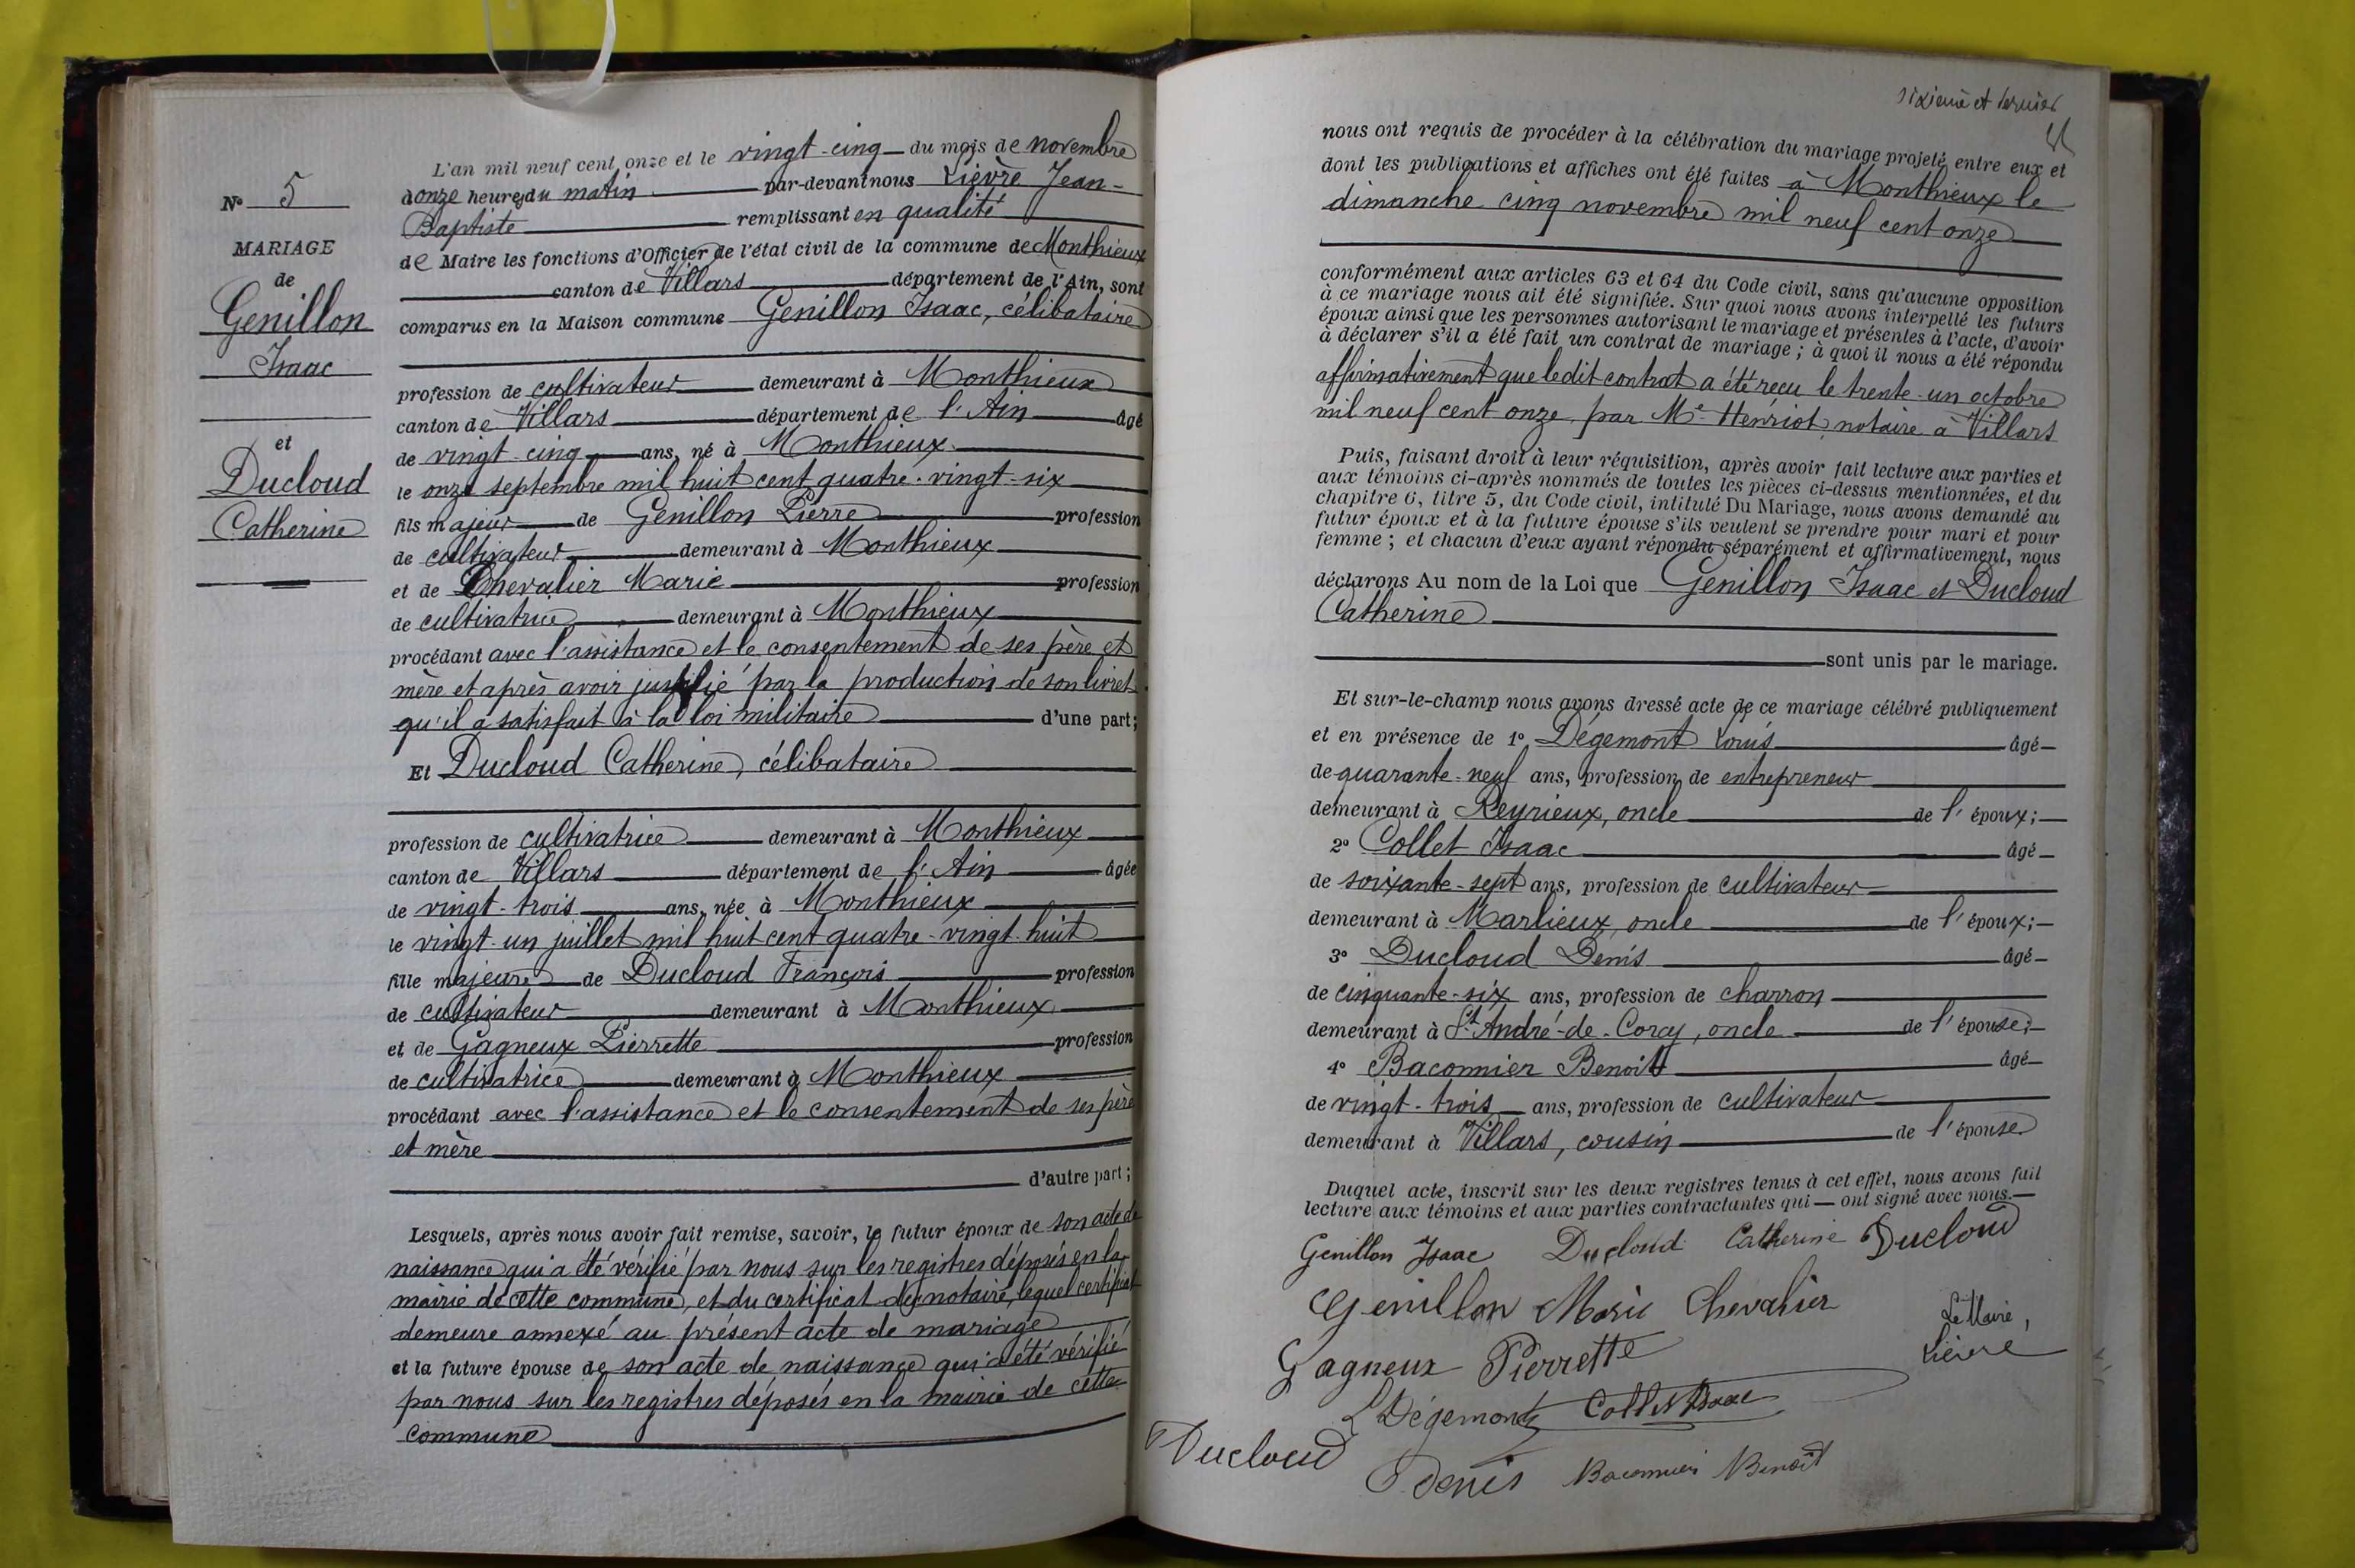 N° 5
MARIAGE
de
Genillon
Isaac
et
Ducloud
Catherine
L'an mil neuf cent onze et le vingt-cinq du mois de novembre
à onze heures du matin par-devant nous Lièvre Jean-
Baptiste remplissant en qualité
de Maire les fonctions d'Officier de l'état civil de la commune de Monthieux
canton de Villars département de l'Ain, sont
comparus en la Maison commune Genillon Isaac, célibataire
profession de cultivateur demeurant à Monthieux
canton de Villars département de l'Ain âgé
de vingt-cinq ans, né à Monthieux
le onze septembre mil huit cent quatre-vingt-six
fils majeur de Genillon Pierre profession
de cultivateur demeurant à Monthieux
et de Chevalier Marie profession
de cultivatrice demeurant à Monthieux
procédant avec l'assistance et le consentement de ses père et
mère et après avoir justifié par la production de son livret
qu'il a satisfait à la loi militaire d'une part;
Et Ducloud Catherine, célibataire
profession de cultivatrice demeurant à Monthieux
canton de Villars département de l'Ain âgée
de vingt-trois ans, née à Monthieux
le vingt-un juillet mil huit cent quatre-vingt-huit
fille majeure de Ducloud François profession
de cultivateur demeurant à Monthieux
et de Gagneux Pierrette profession
de cultivatrice demeurant à Monthieux
procédant avec l'assistance et le consentement de ses père
et mère
d'autre part;
Lesquels, après nous avoir fait remise, savoir, le futur époux de son acte de
naissance qui a été vérifié par nous sur les registres déposés en la
mairie de cette commune, et du certificat du notaire, lequel certificat
demeure annexé au présent acte de mariage
et la future épouse de son acte de naissance qui a été vérifié
par nous sur les registres déposés en la mairie de cette
commune
sixième et dernier
nous ont requis de procéder à la célébration du mariage projeté entre eux et
dont les publications et affiches ont été faites à Monthieux le
dimanche cinq novembre mil neuf cent onze
conformément aux articles 63 et 64 du Code civil, sans qu'aucune opposition
à ce mariage nous ait été signifiée. Sur quoi nous avons interpellé les futurs
époux ainsi que les personnes autorisant le mariage et présentes à l'acte, d'avoir
à déclarer s'il a été fait un contrat de mariage; à quoi il nous a été répondu
affirmativement que ledit contrat a été reçu le trente-un octobre
mil neuf cent onze par Me Henriot, notaire à Villars
Puis, faisant droit à leur réquisition, après avoir fait lecture aux parties et
aux témoins ci-après nommés de toutes les pièces ci-dessus mentionnées, et du
chapitre 6, titre 5, du Code civil, intitulé Du Mariage, nous avons demandé au
futur époux et à la future épouse s'ils veulent se prendre pour mari et pour
femme; et chacun d'eux ayant répondu séparément et affirmativement, nous
déclarons Au nom de la Loi que Genillon Isaac et Ducloud
Catherine
sont unis par le mariage.
Et sur-le-champ nous avons dressé acte de ce mariage célébré publiquement
et en présence de 1° Dégemont Louis âgé
de quarante-neuf ans, profession de entrepreneur
demeurant à Reyrieux, oncle de l'époux;
2° Collet Isaac âgé
de soixante-sept ans, profession de cultivateur
demeurant à Marlieux, oncle de l'époux;
3° Ducloud Denis âgé
de cinquante-six ans, profession de charron
demeurant à St André-de-Corcy, oncle de l'épouse;
4° Baconnier Benoît âgé
de vingt-trois ans, profession de cultivateur
demeurant à Villars, cousin de l'épouse
Duquel acte, inscrit sur les deux registres tenus à cet effet, nous avons fait
lecture aux témoins et aux parties contractantes qui ont signé avec nous.
Genillon Isaac Ducloud Catherine Ducloud
Genillon Marie Chevalier
Le Maire,
Lièvre
Gagneux Pierrette
L Dégemont Collet Isaac
Ducloud Denis Baconnier Benoît